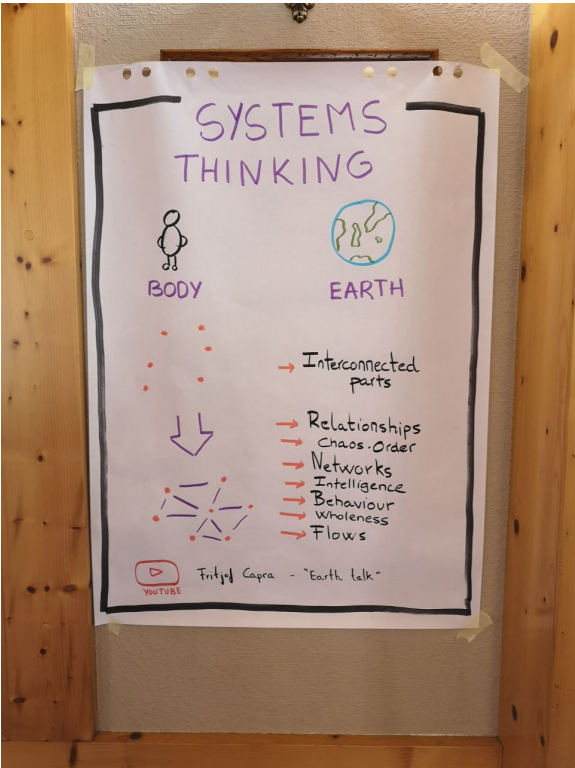 SYSTEMS
THINKING
BODY
EARTH
→ Interconnected
parts
→ Relationships
→ Chaos-Order
→ Networks
→ Intelligence
→ Behaviour
→ Wholeness
→ Flows
YOUTUBE
Fritjof Capra - "Earth talk"